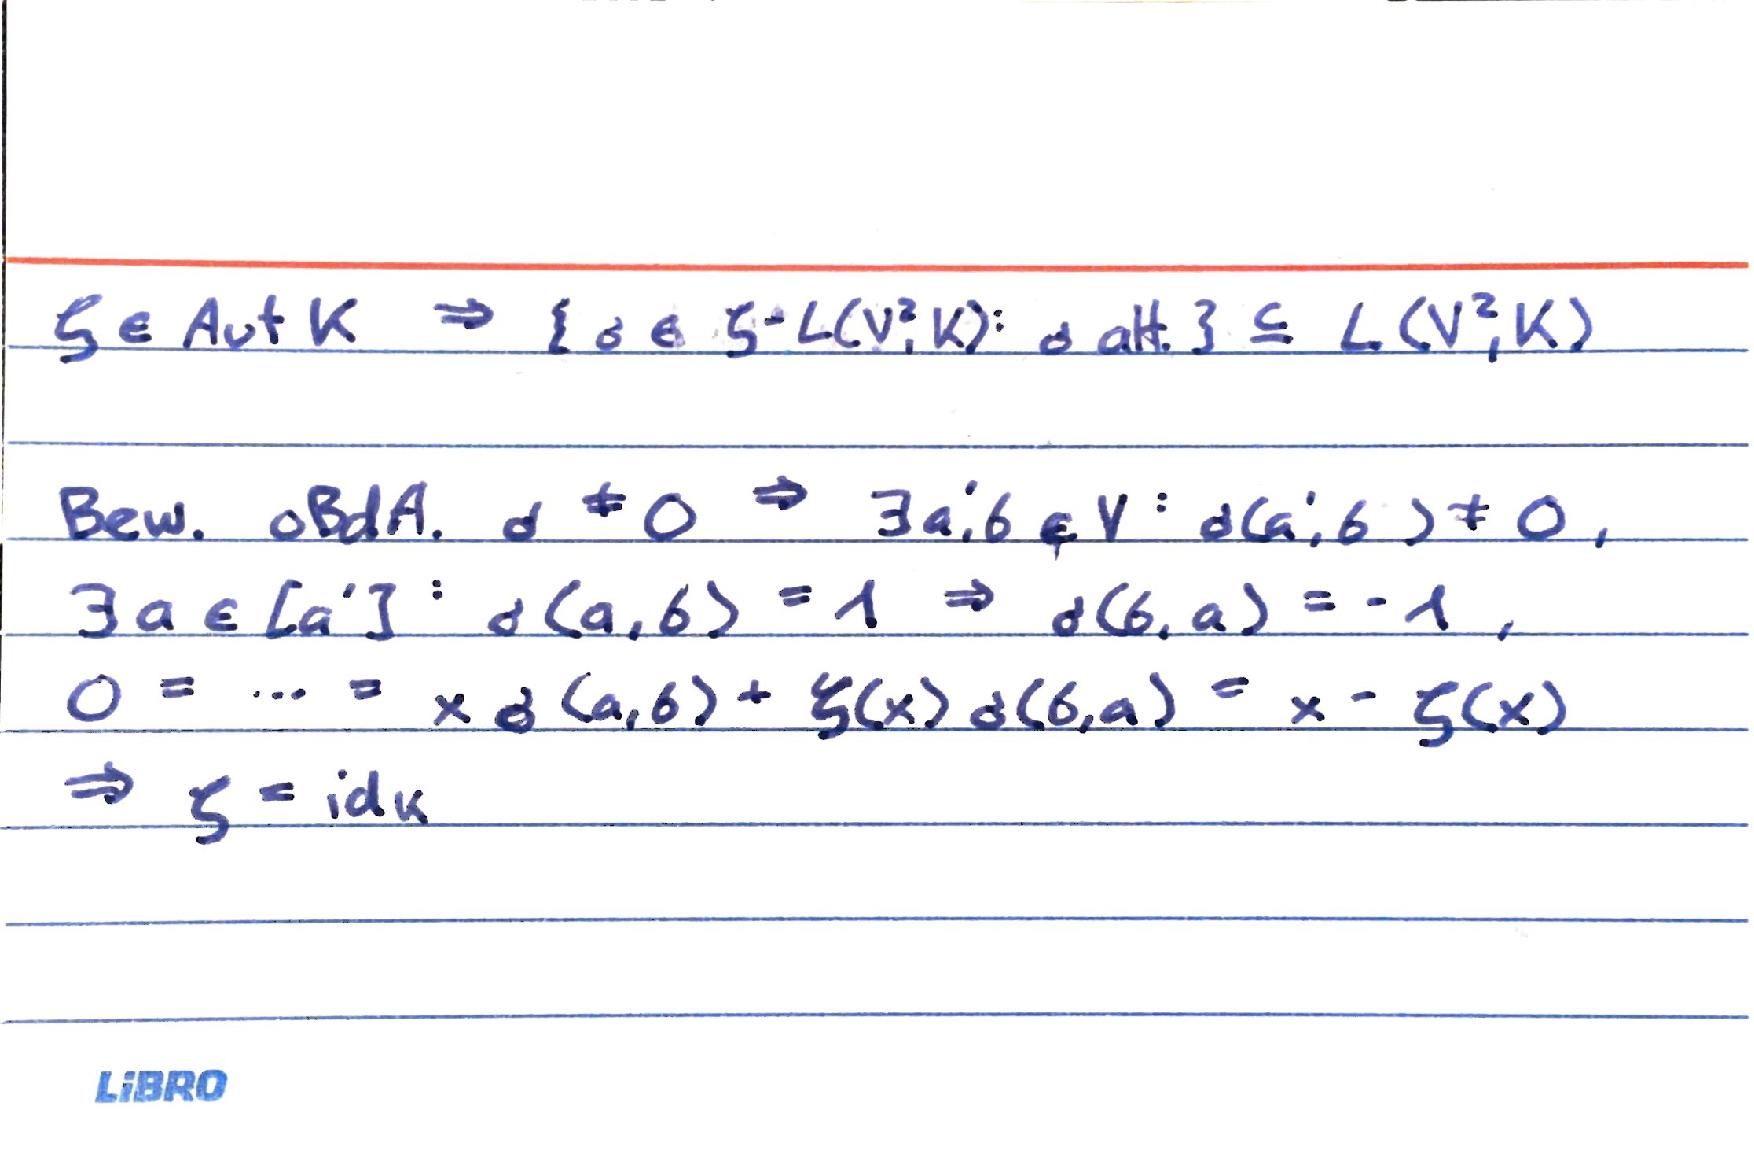 ζ ∈ Aut K ⇒ {σ ∈ ζ-L(V², K): σ alt.} ⊆ L(V², K)
Bew. oBdA. σ ≠ 0 ⇒ ∃a', b ∈ V: σ(a', b) ≠ 0,
∃a ∈ [a']: σ(a, b) = 1 ⇒ σ(b, a) = -1,
0 = ... = x σ(a, b) + ζ(x) σ(b, a) = x - ζ(x)
⇒ ζ = id_K
LiBRO